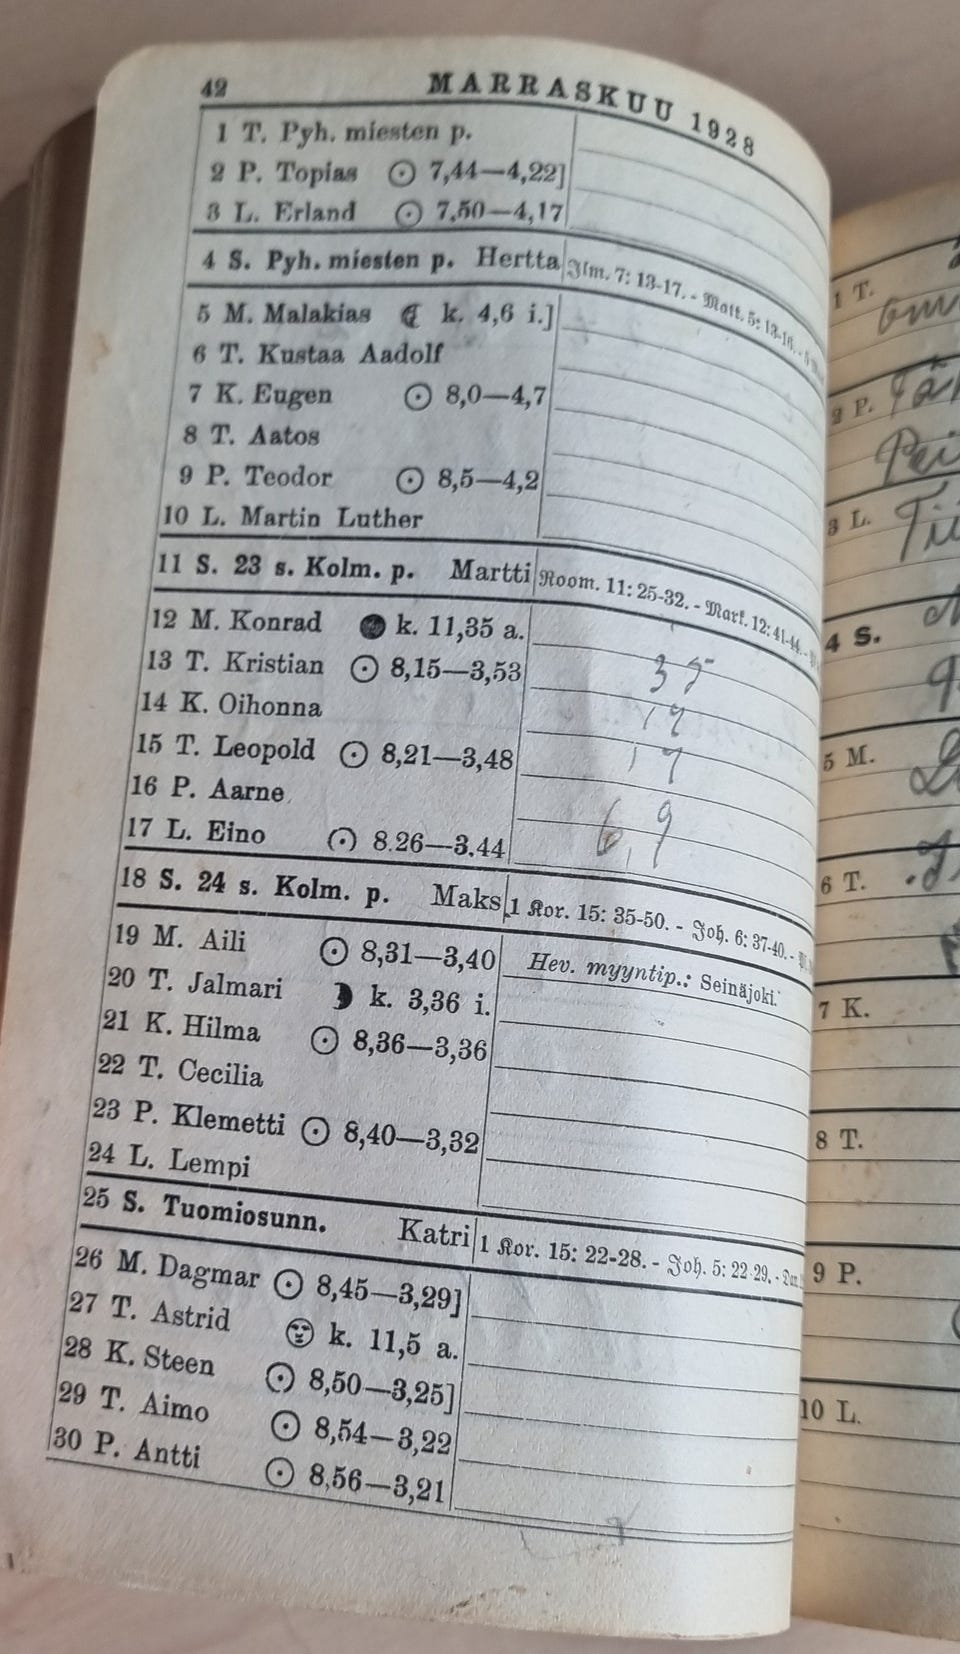 42 MARRASKUU 1928
1 T. Pyh. miesten p.
2 P. Topias ☉ 7,44—4,22]
3 L. Erland ☉ 7,50—4,17
4 S. Pyh. miesten p. Hertta Ilm. 7: 13-17. - Matt. 5: 13-16. -
5 M. Malakias ☾ k. 4,6 i.]
6 T. Kustaa Aadolf
7 K. Eugen ☉ 8,0—4,7
8 T. Aatos
9 P. Teodor ☉ 8,5—4,2
10 L. Martin Luther
11 S. 23 s. Kolm. p. Martti Room. 11: 25-32. - Mark. 12: 41-44. -
12 M. Konrad ● k. 11,35 a.
13 T. Kristian ☉ 8,15—3,53 35
14 K. Oihonna 19
15 T. Leopold ☉ 8,21—3,48 17
16 P. Aarne
17 L. Eino ☉ 8.26—3.44 6,9
18 S. 24 s. Kolm. p. Maks 1 Kor. 15: 35-50. - Joh. 6: 37-40. -
19 M. Aili ☉ 8,31—3,40 Hev. myyntip.: Seinäjoki.
20 T. Jalmari ☽ k. 3,36 i.
21 K. Hilma ☉ 8,36—3,36
22 T. Cecilia
23 P. Klemetti ☉ 8,40—3,32
24 L. Lempi
25 S. Tuomiosunn. Katri 1 Kor. 15: 22-28. - Joh. 5: 22-29. -
26 M. Dagmar ☉ 8,45—3,29]
27 T. Astrid k. 11,5 a.
28 K. Steen ☉ 8,50—3,25]
29 T. Aimo ☉ 8,54—3,22
30 P. Antti ☉ 8,56—3,21
1 T.
2 P.
3 L.
4 S.
5 M.
6 T.
7 K.
8 T.
9 P.
10 L.